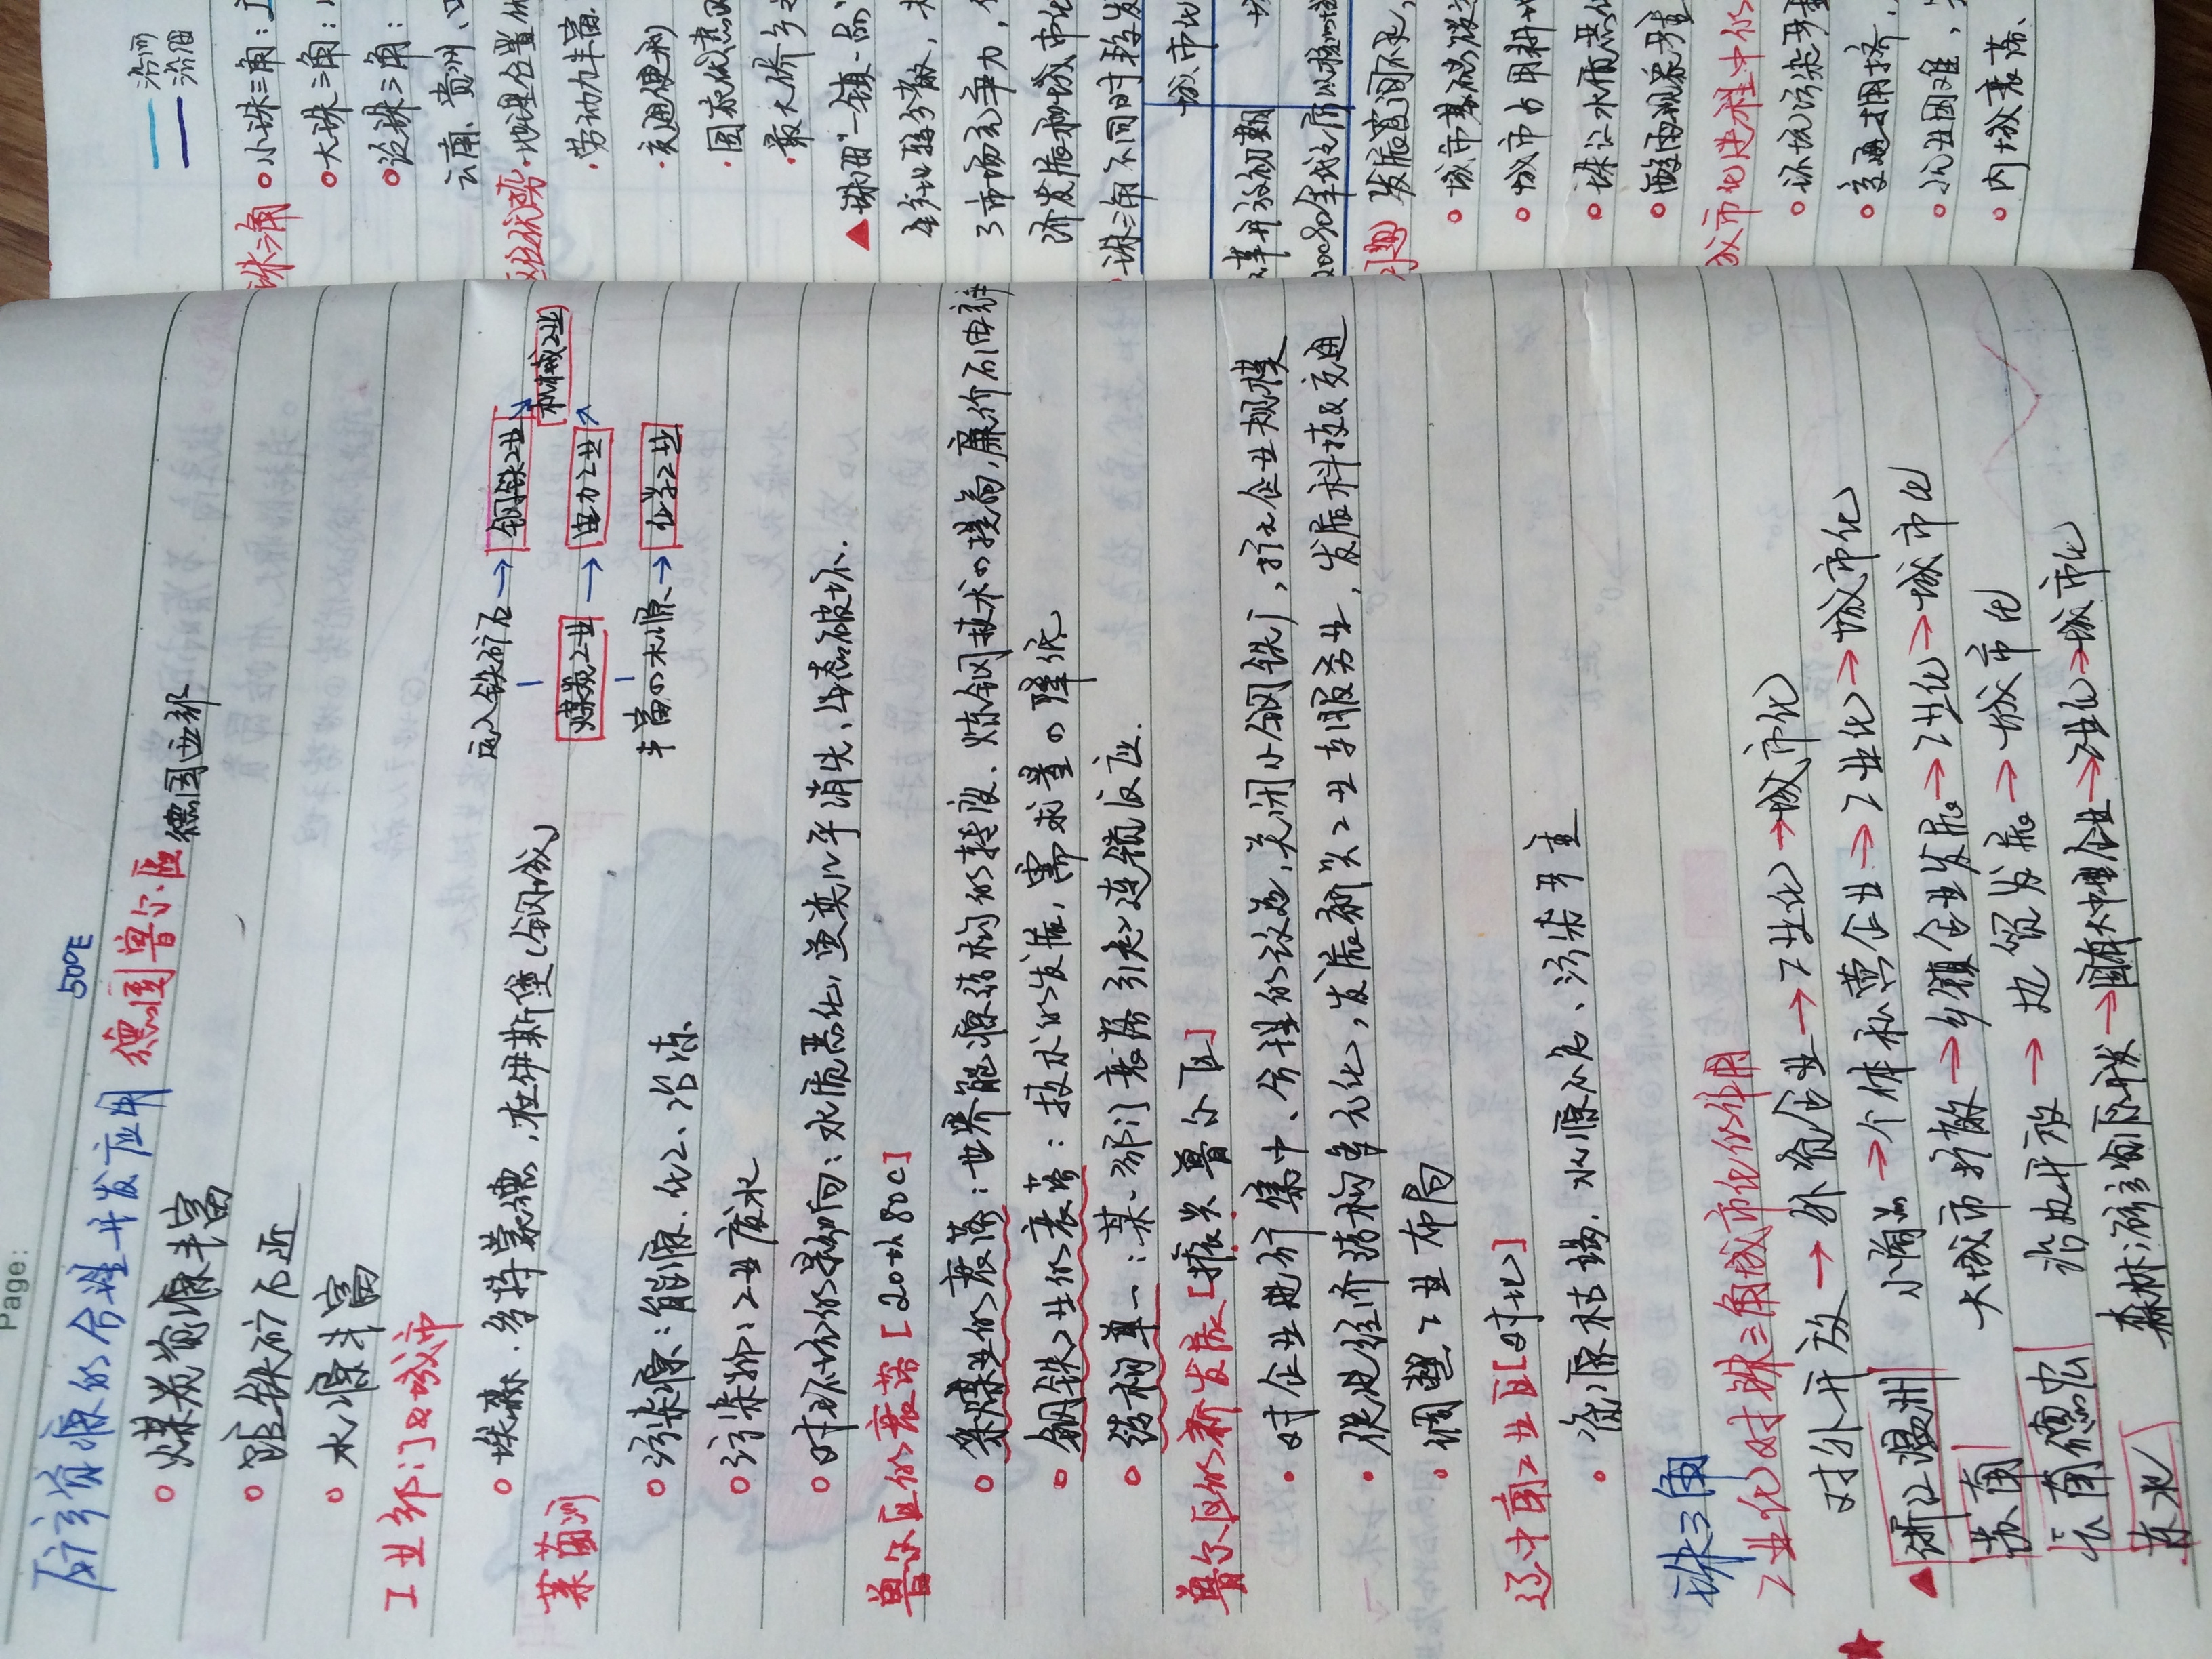 Page:
50°E
矿产资源的合理开发应用 德国鲁尔区 德国西部
煤炭资源丰富
距铁矿石近
水源丰富
工业部门&城市
埃森、多特蒙德,杜伊斯堡(钢城)
运入铁矿石→钢铁工业
机械工业
煤炭工业→电力工业
丰富的水源→化学工业
莱茵河
污染源:能源、化工、冶炼
污染物:工业废水
对环境的影响:水质恶化,鱼类几乎消失、生态破坏.
鲁尔区的衰落[20th80c]
采煤业的衰落:世界能源结构的转变、炼钢技术的提高,廉价石油竞争
钢铁工业的衰落:技术的发展,需求量的降低
结构单一:某一部门衰落引起连锁反应.
鲁尔区的新发展[振兴鲁尔区]
对企业进行集中、合理的改造,关闭小钢铁厂,扩大企业规模
促进经济结构多元化,发展新兴工业和服务业,发展科技&交通
调整工业布局
辽中南工业区[对比]
资源枯竭、水源不足、污染严重
珠三角
工业化对珠三角城市化的作用
对外开放→外资企业→工业化→城市化
浙江温洲 小商品→个体私营企业→工业化→城市化
苏南 大城市扩散→乡镇企业发展→工业化→城市化
云南德宏 沿边开放→边贸发展→城市化
东北 森林矿产资源开发→国有大中型企业→工业化→城市化
沿河
沿海
珠三角 小珠三角:
大珠三角:
泛珠三角:
云南、贵州、
区位优势·地理位置优
劳动力丰富
交通便利
国家优惠政
最大侨乡之
珠海"一镇一品"
分散,
了市场竞争力,
济发展和城市化
珠三角不同时期发
城市化
改革开放初期
20c90年代之后以核心城
问题 发展空间不足,
城市基础设
城市占用耕地
珠江水质恶化
酸雨现象严重
城市化进程中的
环境污染严重
交通拥挤,
就业困难,
内城衰落、